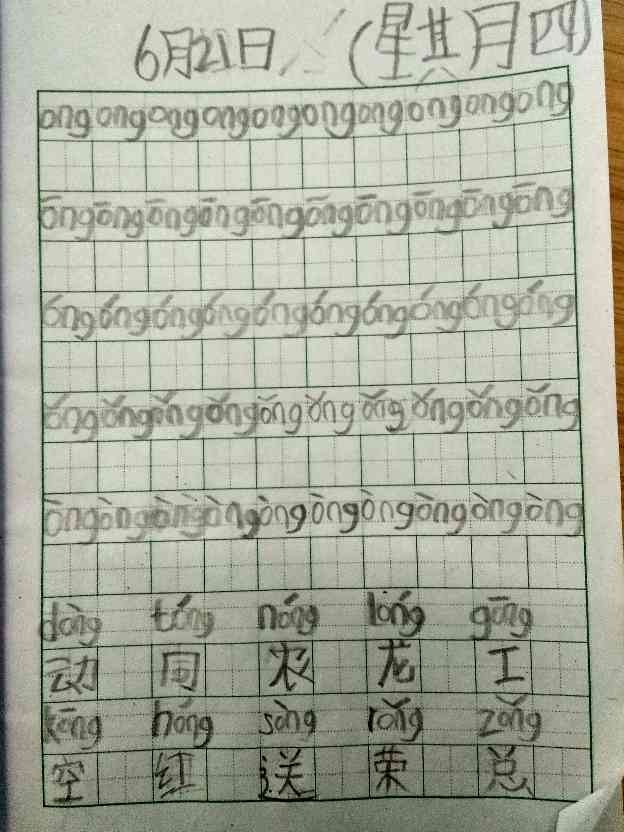 6月21日 (星其月四)
ong ong ong ong ong ong ong ong ong ong
ōng ōng ōng ōng ōng ōng ōng ōng ōng ōng
óng óng óng óng óng óng óng óng óng óng
ǒng ǒng ǒng ǒng ǒng ǒng ǒng ǒng ǒng ǒng
òng òng òng òng òng òng òng òng òng òng
dòng tóng nóng lóng gōng
动 同 农 龙 工
kōng hóng sòng rǒng zǒng
空 红 送 荣 总